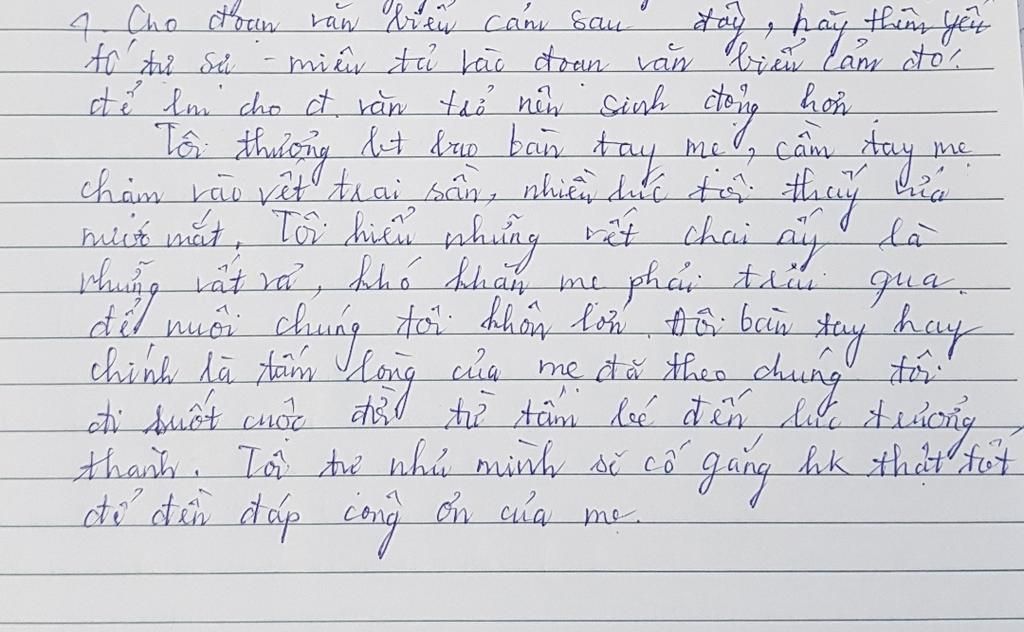 1. Cho đoạn văn biểu cảm sau đây, hãy thêm yếu
tố tự sự - miêu tả vào đoạn văn biểu cảm đó.
để lm cho đ. văn trở nên sinh động hơn
Tôi thường bàn tay mẹ, cầm tay mẹ
chạm vào vết trai sần, nhiều lúc tôi thấy ứa
nước mắt. Tôi hiểu những vết chai ấy là
những vất vả, khó khăn mẹ phải trải qua.
để nuôi chúng tôi khôn lớn. Đôi bàn tay hay
chính là tấm lòng của mẹ đã theo chúng tôi
đi suốt cuộc đời từ tấm bé đến lúc trưởng
thành. Tôi tự nhủ mình sẽ cố gắng hk thật tốt
để đền đáp công ơn của mẹ.